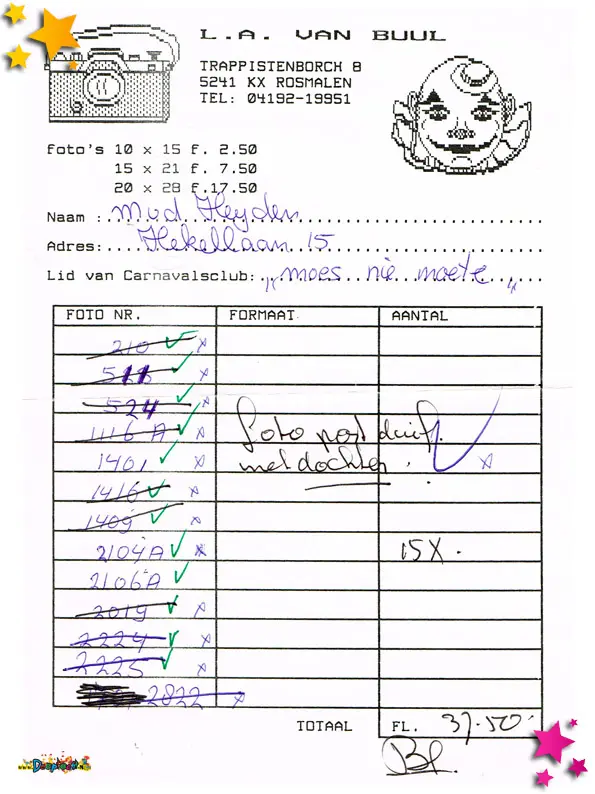 L.A. VAN BUUL
TRAPPISTENBORCH 8
5241 KX ROSMALEN
TEL: 04192-19951
foto's 10 x 15 f. 2.50
15 x 21 f. 7.50
20 x 28 f.17.50
Naam : Mvd Heyden
Adres: Hekellaan 15
Lid van Carnavalsclub: "moes nie moete"
FOTO NR. FORMAAT AANTAL
210 ✓ x
511 ✓ x
524 ✓ x
1116 A ✓ x foto post duif.
1401 ✓ x met dochter. ✓ x
1416 ✓ x
1409 ✓ x
2104A ✓ x 15X.
2106A ✓
2019 ✓ x
2224 ✓ x
2225 ✓ x
2822 x
TOTAAL FL. 37.50